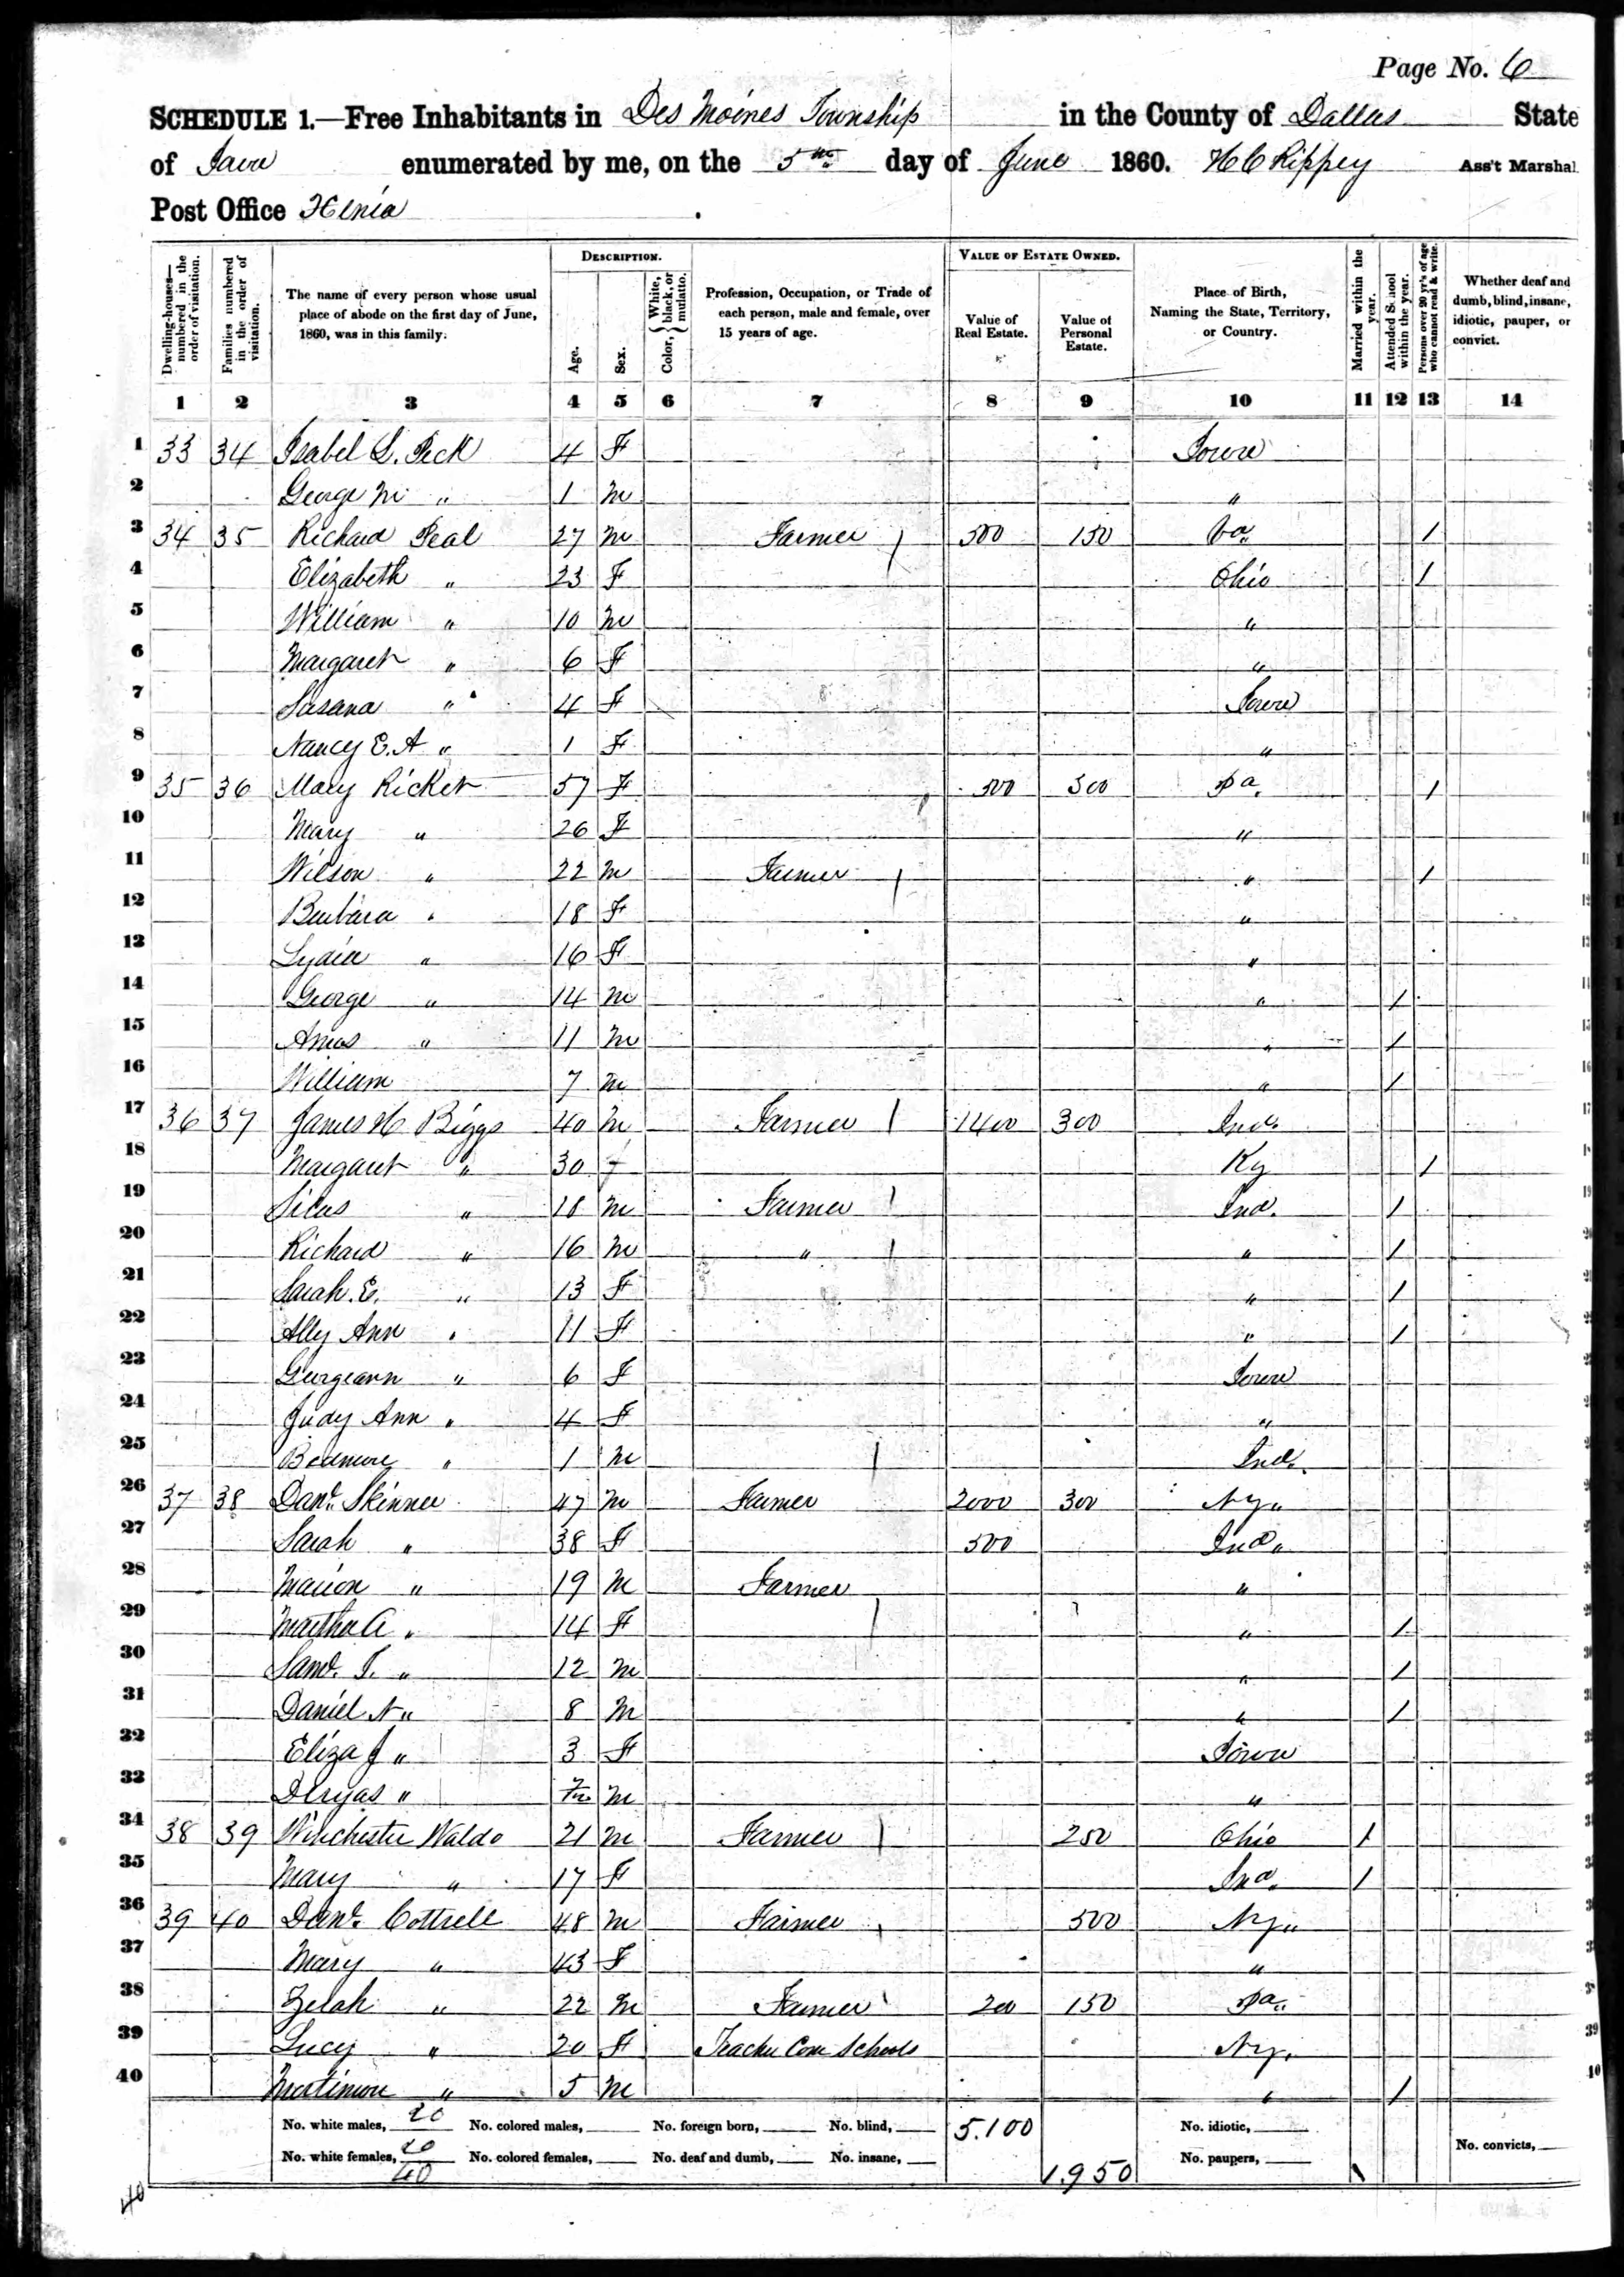 Page No. 6
SCHEDULE 1.—Free Inhabitants in Des Moines Township in the County of Dallas State
of Iowa enumerated by me, on the 5th day of June 1860. H C Rippey Ass't Marshal.
Post Office Xenia
Dwelling-houses—numbered in the order of visitation.
Families numbered in the order of visitation.
The name of every person whose usual place of abode on the first day of June, 1860, was in this family.
DESCRIPTION.
Age.
Sex.
Color, { White, black, or mulatto.
Profession, Occupation, or Trade of each person, male and female, over 15 years of age.
VALUE OF ESTATE OWNED.
Value of Real Estate.
Value of Personal Estate.
Place of Birth, Naming the State, Territory, or Country.
Married within the year.
Attended School within the year.
Persons over 20 yr's of age who cannot read & write.
Whether deaf and dumb, blind, insane, idiotic, pauper, or convict.
1 2 3 4 5 6 7 8 9 10 11 12 13 14
1 33 34 Isabel L. Peck 4 F Iowa
2 George M " 1 M "
3 34 35 Richard Peal 27 M Farmer 500 150 Va. 1
4 Elizabeth " 23 F Ohio 1
5 William " 10 M "
6 Margaret " 6 F "
7 Susana " 4 F Iowa
8 Nancy E. A " 1 F "
9 35 36 Mary Ricket 57 F 500 300 Pa. 1
10 Mary " 26 F "
11 Wilson " 22 M Farmer " 1
12 Barbara " 18 F "
13 Lydia " 16 F "
14 George " 14 M " 1
15 Amos " 11 M " 1
16 William 7 M " 1
17 36 37 James H Biggs 40 M Farmer 1400 300 Ind.
18 Margaret " 30 f Ky 1
19 Silas " 18 M Farmer Ind. 1
20 Richard " 16 M " " 1
21 Sarah. E. " 13 F " 1
22 Ally Ann " 11 F " 1
23 Georgeann " 6 F Iowa
24 Judy Ann " 4 F "
25 " 1 M Ind.
26 37 38 Danl. Skinner 47 M Farmer 2000 300 N.Y.
27 Sarah " 38 F 500 Ind.
28 Marion " 19 M Farmer "
29 Martha A " 14 F " 1
30 Saml. T. " 12 M " 1
31 Daniel N " 8 M " 1
32 Eliza J " 3 F Iowa
33 " M "
34 38 39 Winchester Waldo 21 M Farmer 250 Ohio 1
35 Mary " 17 F Ind. 1
36 39 40 Danl. Cottrell 48 M Farmer 500 N.Y.
37 Mary " 43 F "
38 Zelah " 22 M Farmer 200 150 Pa.
39 Lucy " 20 F Teacher Com Schools N.Y.
40 Mortimore " 5 M " 1
No. white males, 20 No. colored males, No. foreign born, No. blind, 5.100 No. idiotic,
No. white females, 20 No. colored females, No. deaf and dumb, No. insane, 1.950 No. paupers, No. convicts,
40
40